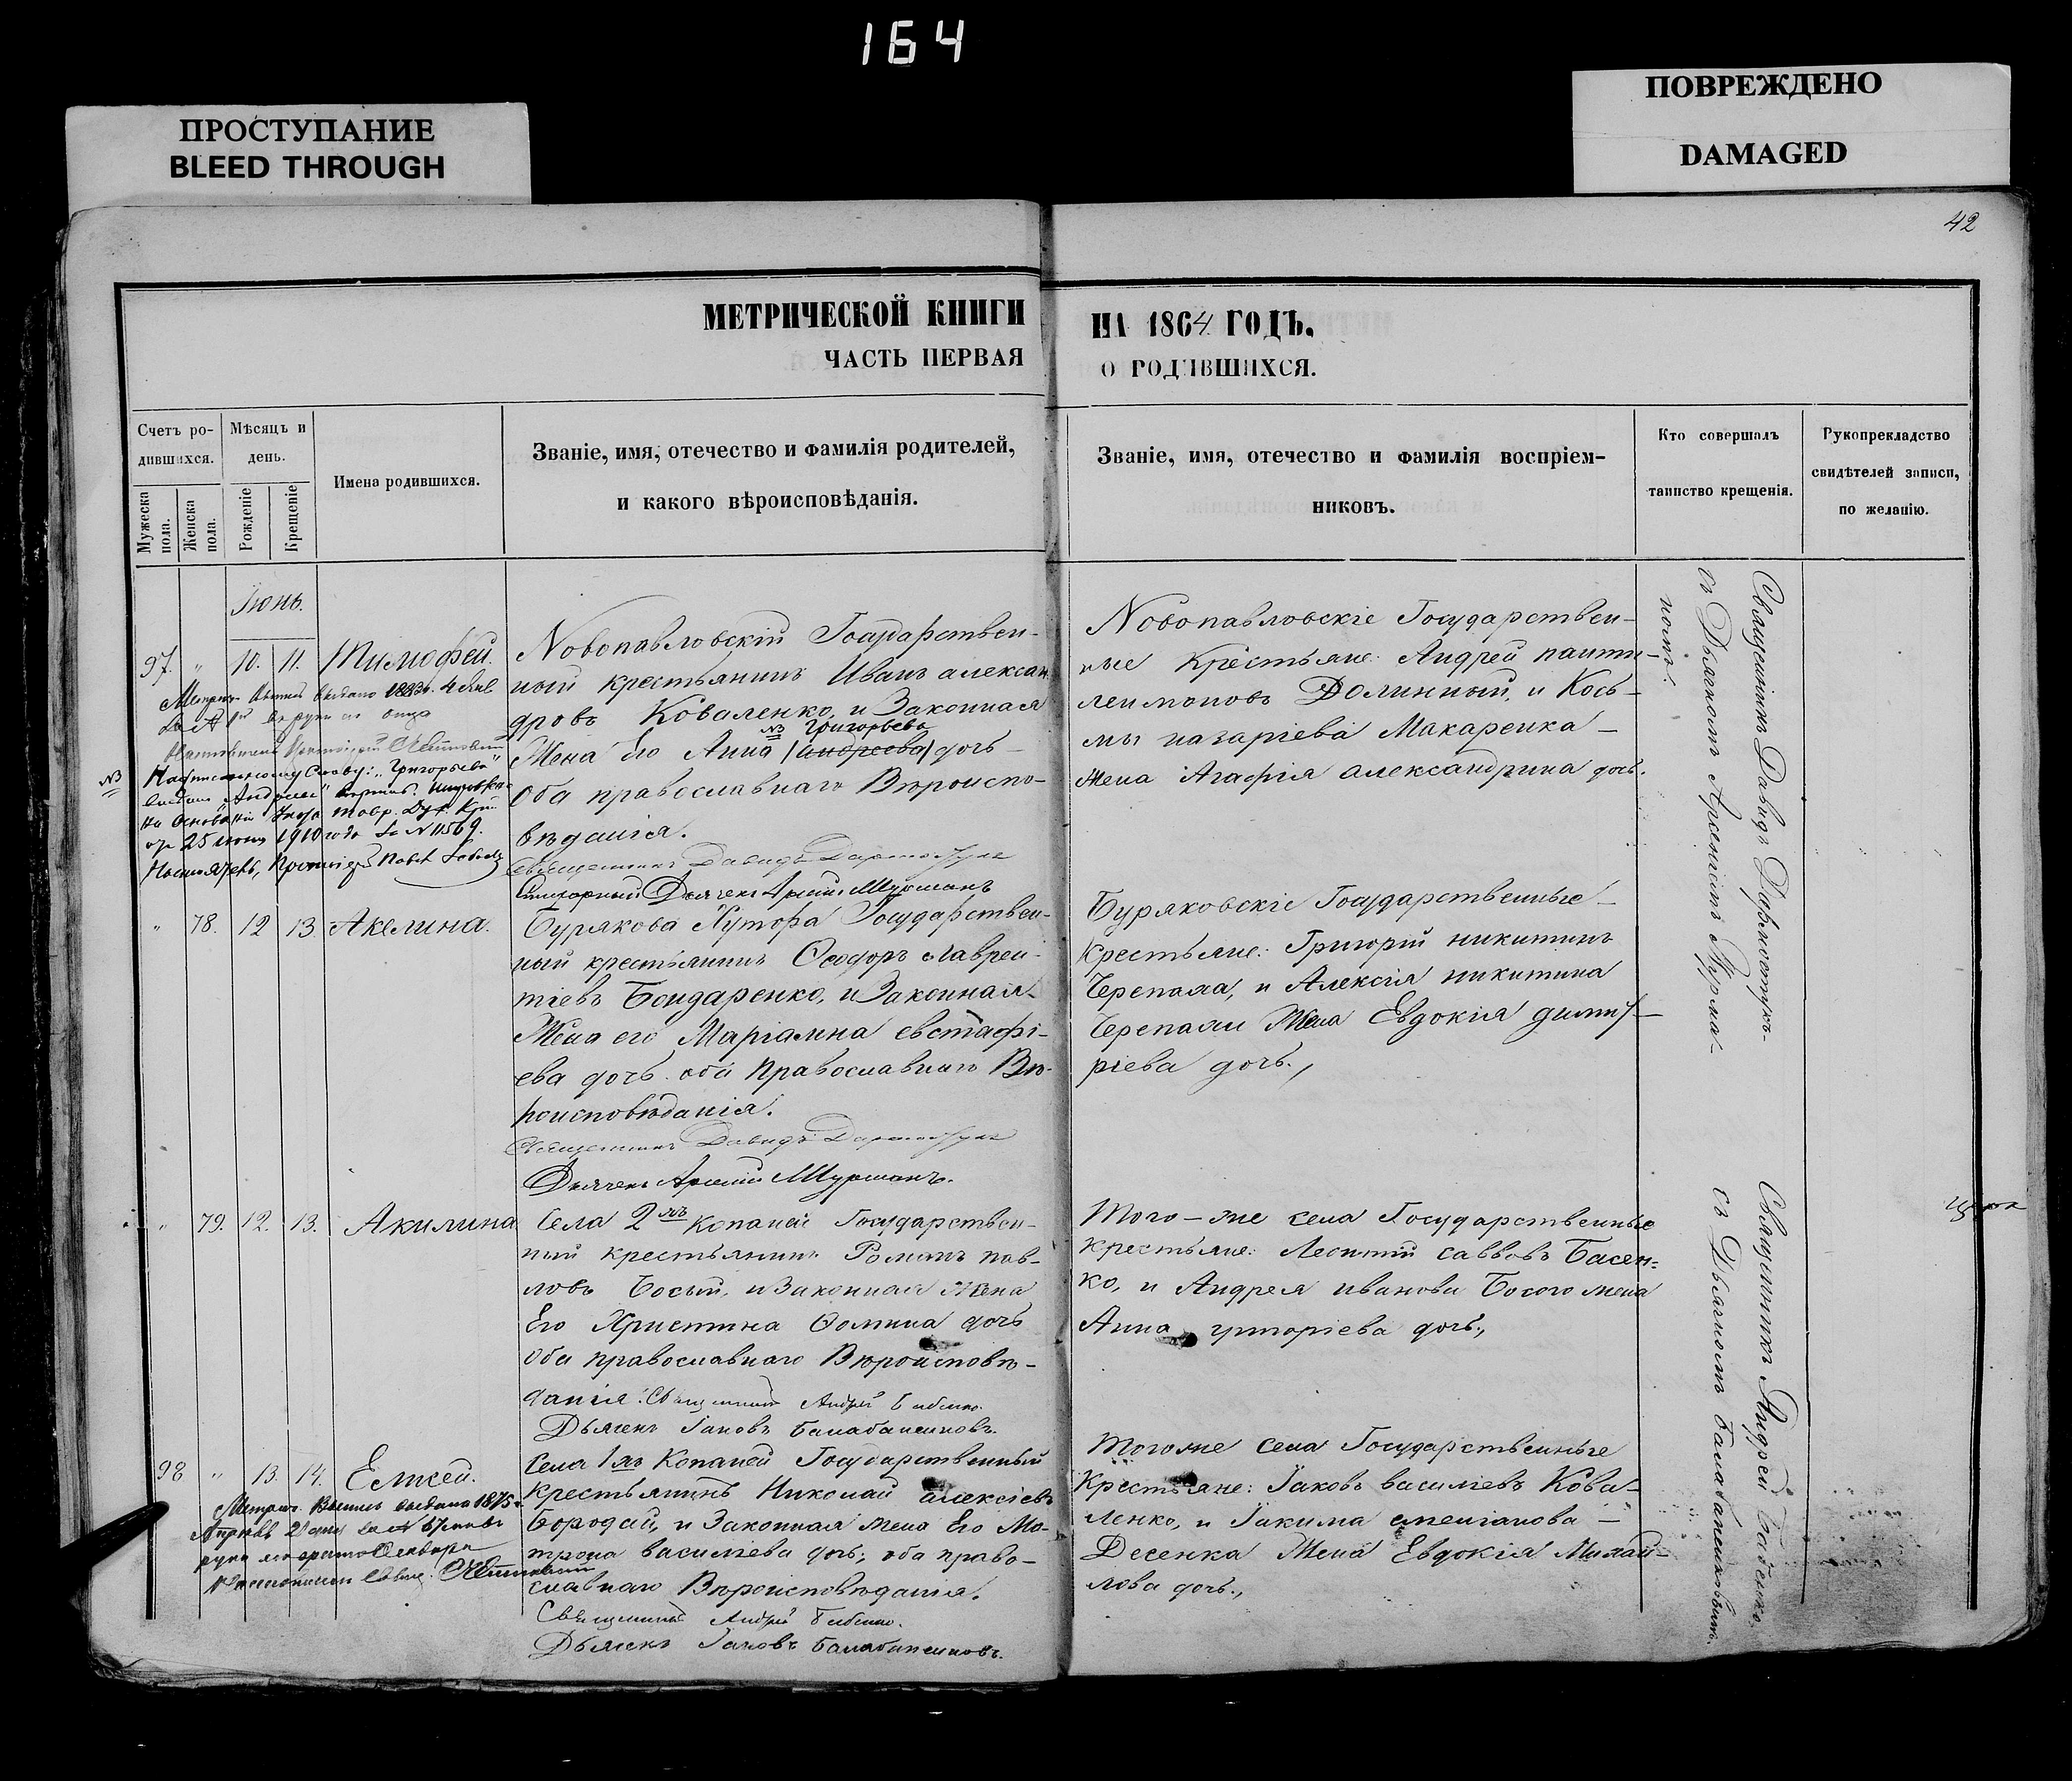 164
ПРОСТУПАНИЕ
BLEED THROUGH
ПОВРЕЖДЕНО
DAMAGED
42
МЕТРИЧЕСКОЙ КНИГИ НА 1864 ГОДЪ.
ЧАСТЬ ПЕРВАЯ О РОДИВШИХСЯ.
Счетъ ро-
дившихся.
Мужеска пола.
Женска пола.
Мѣсяцъ и
день.
Рожденіе
Крещеніе
Имена родившихся.
Званіе, имя, отечество и фамилія родителей,
и какого вѣроисповѣданія.
Званіе, имя, отечество и фамилія воспріем-
никовъ.
Кто совершалъ
таинство крещенія.
Рукоприкладство
свидѣтелей записи,
по желанію.
Іюнь.
97. " 10. 11. Тимофей.
Новопавловскій Государствен-
ный крестьянинъ Иванъ алексан
дровъ Коваленко, и Законная
№ Григорьева
Жена Его Анна (андреева) дочь
Оба православнаго Вѣроиспо-
вѣданія.
Священникъ Давидъ
Дьячекъ Арсеній Мурманъ
Новопавловскіе Государствен-
ные Крестьяне: Андрей панти-
леимоновъ Долинный, и Козь-
мы назаріева Макаренка
Жена Агафія александрина дочь.
№ Надписанному Слову: "Григорьева"
"Андреева"
25 1910 года № 11569.
" 78. 12 13. Акелина.
Бурякова Хутора Государствен-
ный крестьянинъ Ѳеодоръ лаврен-
тіевъ Бондаренко, и Законная
Жена его Маріамна евстафі-
ева дочь. оба Православнаго Вѣ-
роисповѣданія.
Священникъ Давидъ
Дьячекъ Арсеній Мурманъ.
Буряковскіе Государственные
Крестьяне: Григорій никитинъ
Черепаха, и Алексія никитина
Черепахи Жена Евдокія димит-
ріева дочь.,
Священникъ Давидъ
съ Дьячкомъ Арсеніемъ Мурма-
номъ.
" 79. 12. 13. Акилина
Села 2хъ Копаней Государствен-
ный крестьянинъ Романъ пав-
ловъ Босый, и Законная Жена
Его Христина Ѳомина дочь
Оба православнаго Вѣроисповѣ-
данія. Священникъ Андрей Бабенко.
Дьячекъ Іаковъ Балабаненковъ.
Того-же села Государственные
крестьяне: Леонтій саввовъ Басен-
ко, и Андрея иванова Босого жена
Анна григоріева дочь.,
98 " 13. 14. Елисей.
Села 1хъ Копаней Государственный
Крестьянинъ Николай алексіевъ
Бородай, и Законная жена Его Ма-
трона василіева дочь, оба право-
славнаго Вѣроисповѣданія.
Священникъ Андрей Бабенко.
Дьячекъ Іаковъ Балабаненковъ.
Тогоже села Государственные
Крестьяне: Іаковъ василіевъ Кова-
ленко, и Іакима
Десенка Жена Евдокія Михаи-
лова дочь.,
Священникъ Андрей Бабенко
съ Дьячкомъ Балабаненковымъ.